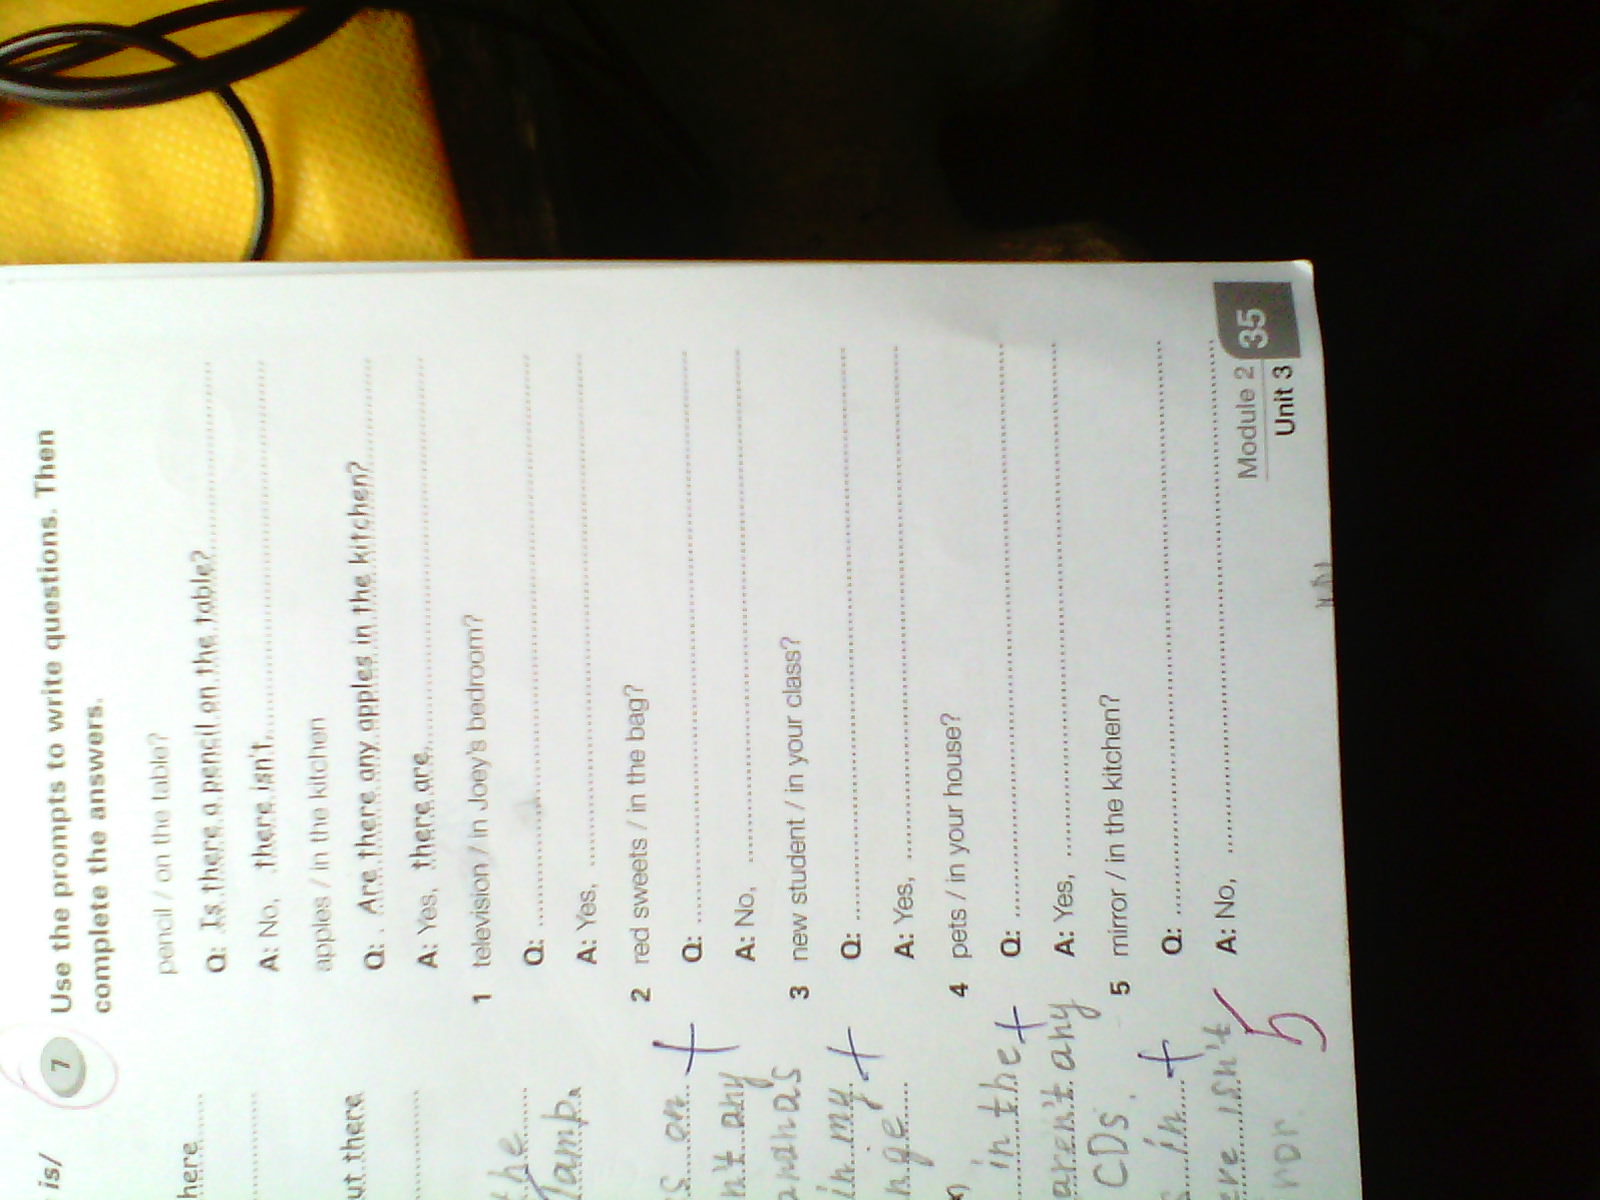 is/
here
ut there
the
lamp.
s on +
n't any
ananas
in my +
in the +
aren't any
CDs.
s in +
ere isn't
5
7 Use the prompts to write questions. Then
complete the answers.
pencil / on the table?
Q: Is there a pencil on the table?
A: No, there isn't.
apples / in the kitchen
Q: Are there any apples in the kitchen?
A: Yes, there are.
1 television / in Joey's bedroom?
Q:
A: Yes,
2 red sweets / in the bag?
Q:
A: No,
3 new student / in your class?
Q:
A: Yes,
4 pets / in your house?
Q:
A: Yes,
5 mirror / in the kitchen?
Q:
A: No,
Module 2 35
Unit 3